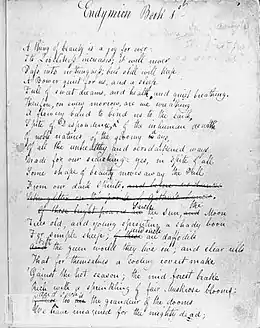 Endymion Book 1st
A thing of beauty is a joy for ever
Its Loveliness increases; it will never
Pass into nothingness; but still will keep
A Bower quiet for us, and a sleep
Full of sweet dreams, and health, and quiet breathing.
Therefore, on every morrow, are we wreathing
A flowery band to bind us to the earth,
Spite of Despondence, of the inhuman dearth
Of noble natures, of the gloomy days
Of all the unhealthy and o'erdarkened ways
Made for our searching: yes, in spite of all
Some shape of beauty moves away the Pall
From our dark Spirits.
the Sun, the Moon
Trees old, and young sprouting a shady boon
For simple sheep; and such are daffodils
With the green world they live in; and clear rills
That for themselves a cooling covert make
'Gainst the hot season; the mid forest brake
Rich with a sprinkling of fair Muskrose blooms;
And such too is the grandeur of the dooms
We have imagined for the mighty dead;